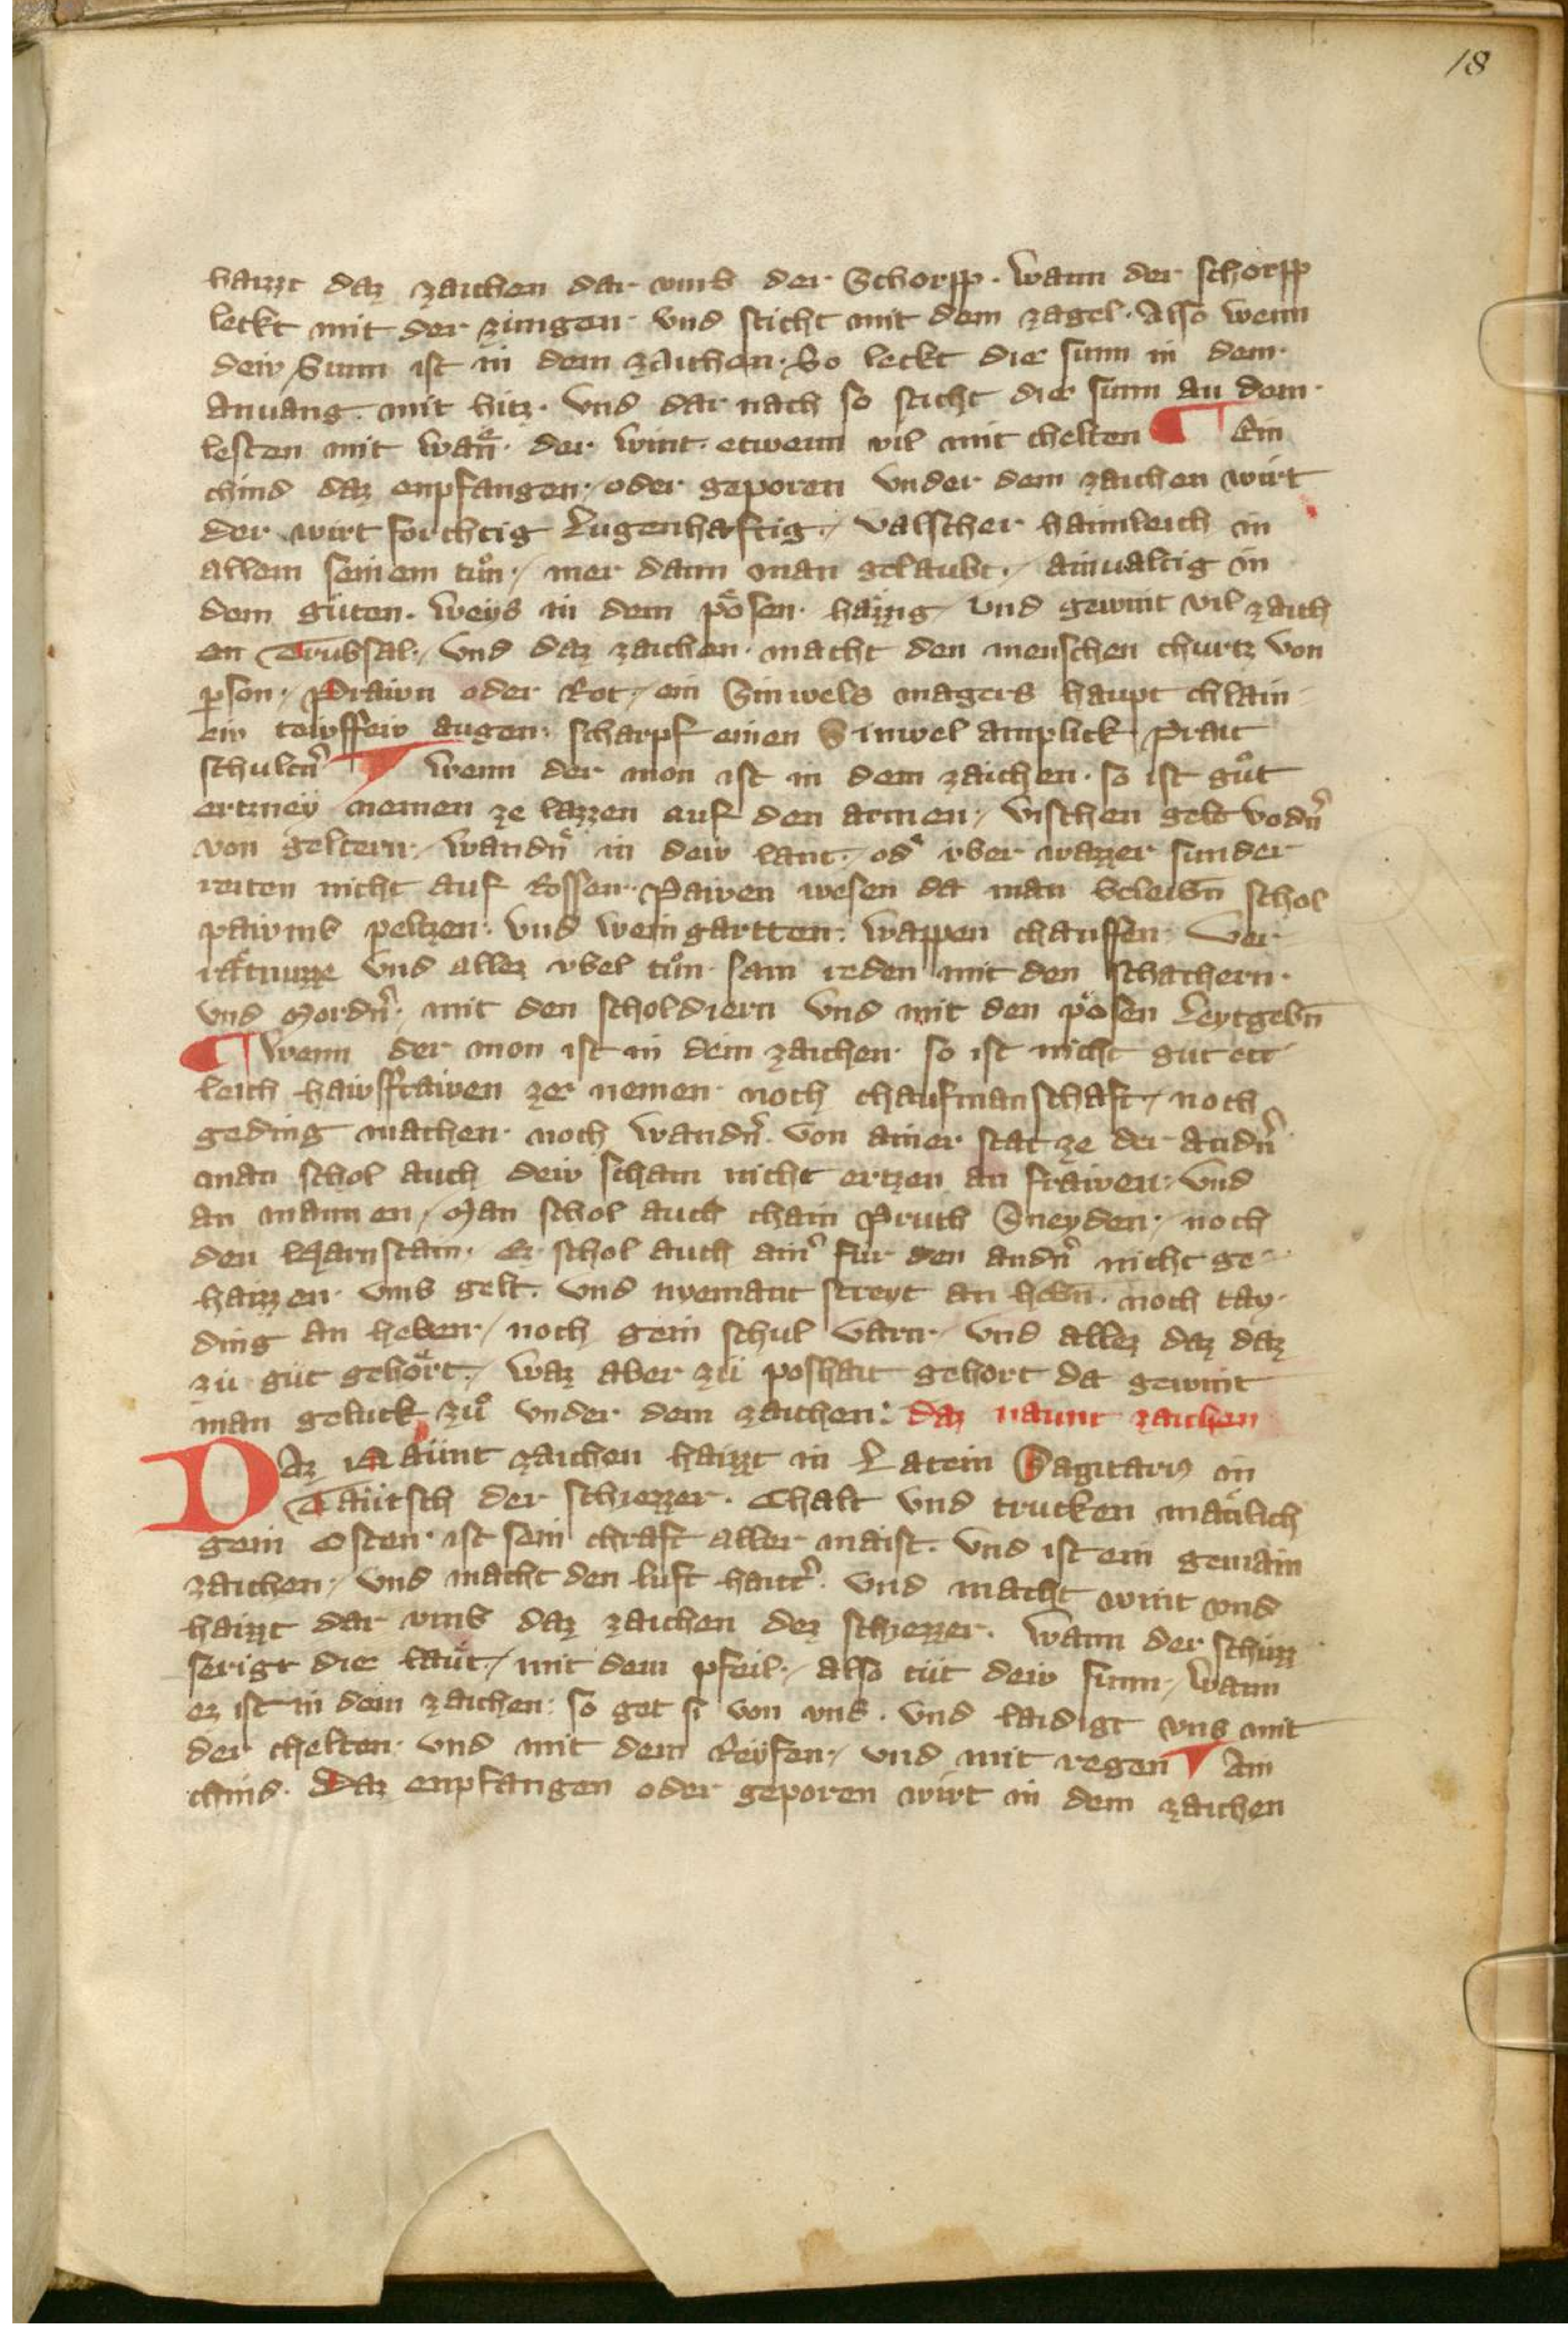 18
haizzt daz zaichen dar vmb der Schorpp. Wann der schorpp
leckt mit der zungen. vnd sticht mit dem zagel. Also wenn
dew Sunn ist in dem zaichen. So leckt die sunn in dem
anuang. mit hitz. Vnd dar nach so sticht die sunn an dem
lesten mit der wint. etwenn vil mit chelten ¶ Ein
chind daz enpfangen. oder geporen vnder dem zaichen wirt
der wirt forchtig Lugenhaftig. / valscher haimleich in
allem seinem tůn. / mer dann man gelaubt. / ainualtig in
dem guten. Weys in dem pösen. häzzig / vnd gewint vil zaich
en Trubsal. / Vnd daz zaichen. macht den menschen churtz von
pson. / Prawn oder Rot. / ein Sinwels magers haupt chlain
ew tewffew augen. scharpf einen Sinwel anplick Prait
schultn̄ ¶ Wenn der mon ist in dem zaichen. so ist gůt
ertzney nemen ze lazzen auf den armen. / vischen gelt vodn̄
von geltern. / Wandn̄ in dew lant. / od vber wazzer sunder
reiten nicht auf Rossen. Pawen wesen da man beleibn̄ schol
pawmb peltzen. vnd weingartten. Wappen chauffen. Ver
rätnüzze vnd allez vbel tůn. sam reden mit den schachern.
vnd Mordn̄. mit den scholdiern vnd mit den pösen Leytgebn̄
¶ Wenn der mon ist in dem zaichen. so ist nicht gut ett
leich hawsfrawen zer nemen. noch chaufmanschaft / noch
geding machen. noch Wandn̄. Von ainer stat ze der andn̄
man schol auch dew scham nicht ertzen an frawen. Vnd
an mannen / Man schol auch chain Pruch Sneyden. / noch
den Harnstain. Er schol auch ain̄ fur den andn̄ nicht ge
haizzen. vmb gelt. vnd nyemant streyt an hebn̄. noch tay
ding an heben. / noch gein schul varn. / vnd allez daz daz
zu gut gehört. / Waz aber zu poshait gehort da gewint
man geluck zů vnder dem zaichen: daz naunt zaichen
DAz Naünt zaichen haizzt in Latein Sagitari9 in
Täutsch der schiezzer. Chalt vnd trucken mänlich
gein Osten. ist sein chraft aller maist. Vnd ist ein gemain
zaichen. / Vnd macht den luft hait̄. Vnd macht wint vnd
haizzt dar vmb daz zaichen der schiezzer. Wann der schütz
serigt die läut. / mit dem pfeil. / also tüt dew sunn. / Wann
ez ist in dem zaichen. so get si von vns. Vnd laidigt vns mit
der chelten. Vnd mit dem Reyfen. / vnd mit regen ¶ Ain
chind. Daz enpfangen oder geporen wirt in dem zaichen